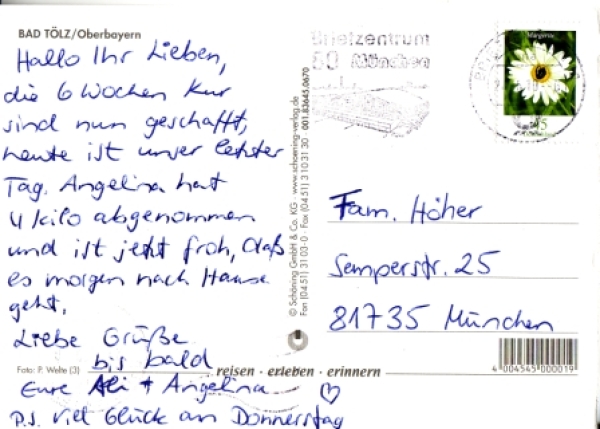 BAD TÖLZ/Oberbayern
Hallo Ihr Lieben,
die 6 Wochen Kur
sind nun geschafft,
heute ist unser letzter
Tag. Angelina hat
4 kilo abgenommen
und ist jetzt froh, daß
es morgen nach Hause
geht.
Liebe Grüße
bis bald
Eure Ali + Angelina
P.S. Viel Glück am Donnerstag
Foto: P. Welte (3)
reisen · erleben · erinnern
© Schöning GmbH & Co. KG · www.schoening-verlag.de
Fon (04 51) 3 10 3-0 · Fax (04 51) 3 10 31 30 001.83645.0670
Briefzentrum
80 München
Margerite
45
Fam. Höher
Semperstr. 25
81735 München
4 004545 000019